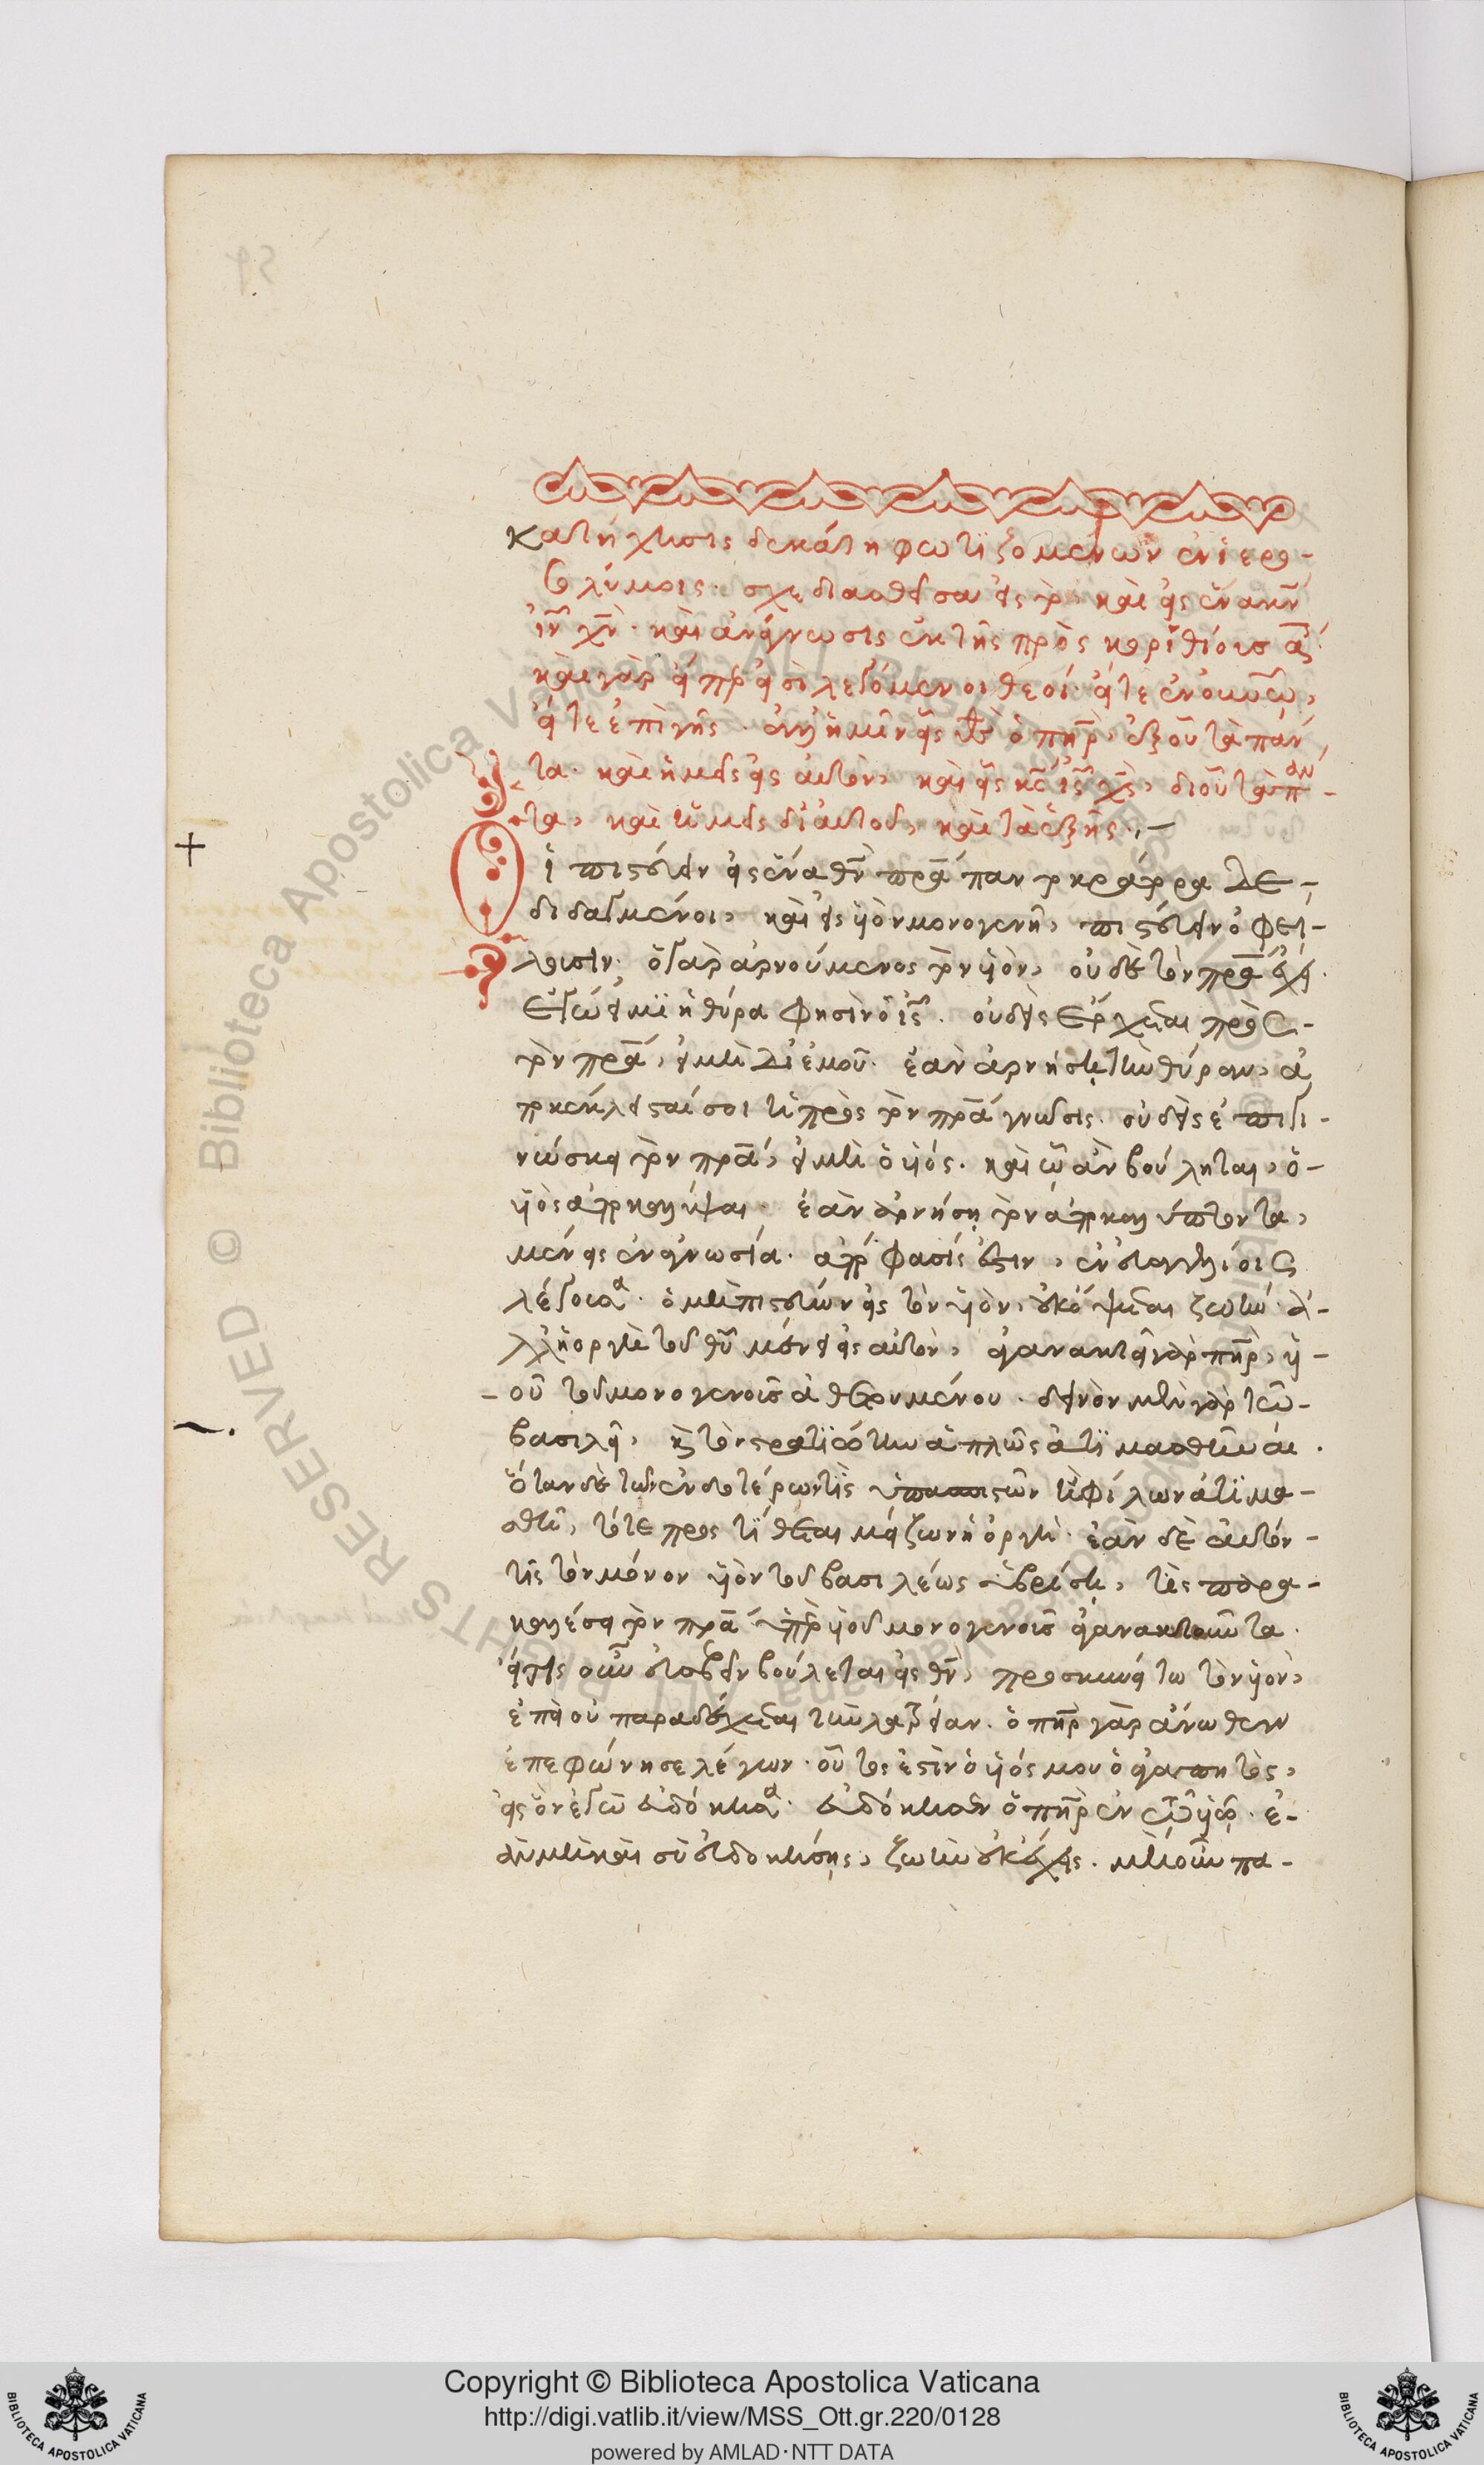 Κατήχησις δεκάτη φωτιζομένων ἐν ἱερο-
σολύμοις. σχεδιασθεῖσα εἰς τὸ, καὶ εἰς ἕνα κν̄
ἰν̄ χν̄. καὶ ἀνάγνωσις ἐκ τῆς πρὸς κορινθίους α΄.
καὶ γὰρ εἴπερ εἰσὶ λεγόμενοι θεοί. εἴτε ἐν οὐνῶ,
εἴτε ἐπὶ γῆς. ἀλλ' ἡμῖν εἷς θς̄ ὁ πηρ̄, ἐξ οὗ τὰ πάν
τα. καὶ ἡμεῖς εἰς αὐτόν, καὶ εἷς κς̄ ις̄ χς̄, δι οὗ τὰ πάν-
τα, καὶ ἡμεῖς δι αὐτοῦ, καὶ τὰ ἑξῆς.
Οἱ πιστεύειν εἰς ἕνα θν̄ πρᾱ παντοκράτορα δε-
διδαγμένοι, καὶ εἰς υἱὸν μονογενῆ, πιστεύειν ὀφεί-
λουσιν. ὁ γὰρ ἀρνούμενος τὸν υἱὸν, οὐδὲ τὸν πρᾱ ἔχει.
Ἐγώ εἰμι ἡ θύρα φησὶν ὁ ις̄. οὐδεὶς ἔρχεται πρὸς
τὸν πρᾱ, εἰ μὴ δι' ἐμοῦ. ἐὰν ἀρνήσῃ τὴν θύραν, ἀ
ποκέκλεισταί σοι ἡ πρὸς τὸν πρᾱ γνῶσις. οὐδεὶς ἐπιγι-
νώσκει τὸν πρᾱ, εἰ μὴ ὁ υἱός. καὶ ᾧ ἂν βούληται, ὁ
υἱὸς ἀποκαλύψαι. ἐὰν ἀρνήσῃ τὸν ἀποκαλύπτοντα,
μένεις ἐν ἀγνωσία. ἀπόφασίς ἐστιν, ἐν εὐαγγελίοις
λέγουσα. ὁ μὴ πιστεύων εἰς τὸν υἱόν, οὐκ ὄψεται ζωὴν. ἀ-
λλ' ἡ ὀργὴ τοῦ θῡ μένει εἰς αὐτόν, ἀγανακτεῖ γὰρ πηρ̄, υἱ-
οῦ τοῦ μονογενοῦς ἀθετουμένου. δεινὸν μὲν γὰρ τῶ
βασιλεῖ, καὶ τὸν στρατιώτην ἁπλῶς ἀτιμασθῆναι.
ὅταν δὲ τῶν ἐντοτέρων τὶς ὑπασπιστῶν ἢ φίλων ἀτιμα-
σθῆ, τότε προστίθεται μείζων ἡ ὀργὴ. ἐὰν δὲ αὐτόν
τις τὸν μόνον υἱὸν τοῦ βασιλέως ὑβρίσῃ, τὶς παρα-
καλέσει τὸν πρᾱ ὑπὲρ υἱοῦ μονογενοῦς ἀγανακτοῦντα.
εἴ τις οὖν εὐσεβεῖν βούλεται εἰς θν̄, προσκυνείτω τὸν υἱὸν,
ἐπεὶ οὐ παραδέχεται τὴν λατρείαν. ὁ πηρ̄ γὰρ ἄνωθεν
ἐπεφώνησε λέγων. οὗτος ἐστὶν ὁ υἱός μου ὁ ἀγαπητὸς,
εἰς ὃν ἐγὼ εὐδόκησα. εὐδόκησεν ὁ πηρ̄ ἐν τῷ υἱῷ. ἐ-
ὰν μὴ καὶ σὺ εὐδοκήσῃς, ζωὴν οὐκ ἔχεις. μὴ οὖν πα-
Copyright © Biblioteca Apostolica Vaticana
http://digi.vatlib.it/view/MSS_Ott.gr.220/0128
powered by AMLAD·NTT DATA